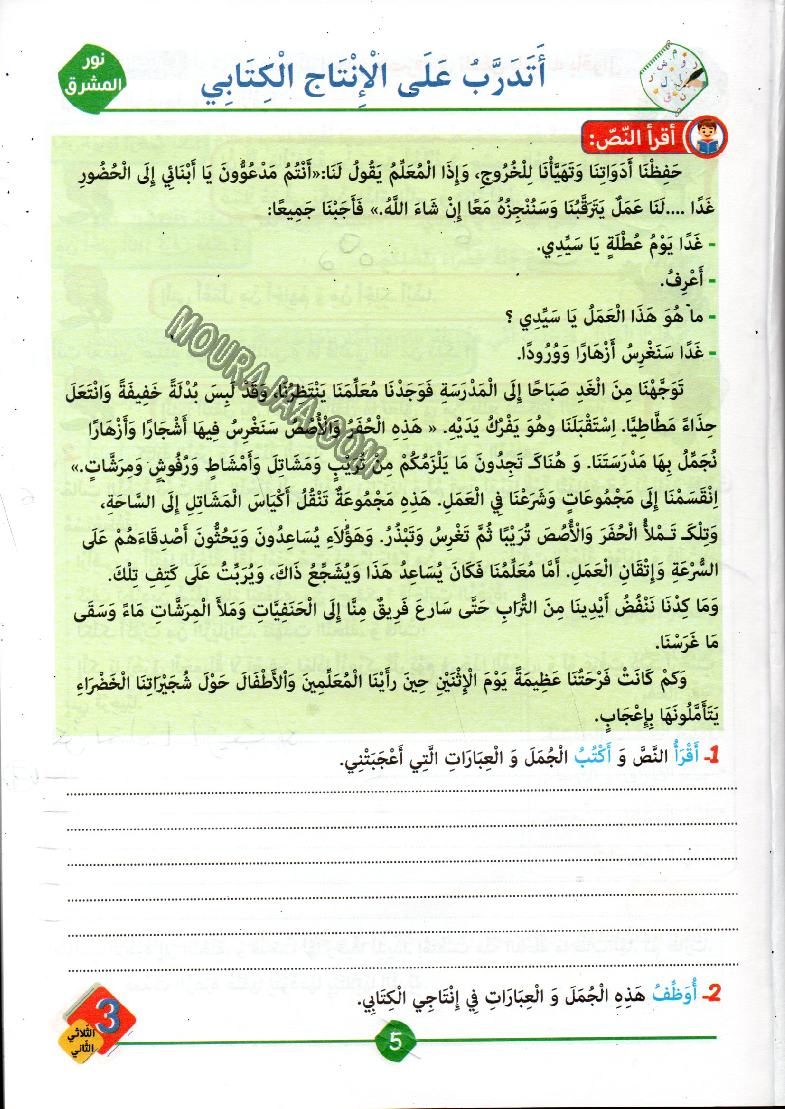 نور
المشرق
أَتَدَرَّبُ عَلَى الْإِنْتَاجِ الْكِتَابِي
أقرأ النّصّ:
حَفِظْنَا أَدَوَاتِنَا وَتَهَيَّأْنَا لِلْخُرُوجِ، وَإِذَا الْمُعَلِّمُ يَقُولُ لَنَا:«أَنْتُمْ مَدْعُوُّونَ يَا أَبْنَائِي إِلَى الْحُضُورِ
غَدًا ....لَنَا عَمَلٌ يَتَرَقَّبُنَا وَسَنُنْجِزُهُ مَعًا إِنْ شَاءَ اللَّهُ.» فَأَجَبْنَا جَمِيعًا:
- غَدًا يَوْمُ عُطْلَةٍ يَا سَيِّدِي.
- أَعْرِفُ.
- مَا هُوَ هَذَا الْعَمَلُ يَا سَيِّدِي ؟
- غَدًا سَنَغْرِسُ أَزْهَارًا وَوُرُودًا.
تَوَجَّهْنَا مِنَ الْغَدِ صَبَاحًا إِلَى الْمَدْرَسَةِ فَوَجَدْنَا مُعَلِّمَنَا يَنْتَظِرُنَا، وَقَدْ لَبِسَ بُدْلَةً خَفِيفَةً وَانْتَعَلَ
حِذَاءً مَطَّاطِيًّا. اِسْتَقْبَلَنَا وهُوَ يَفْرُكُ يَدَيْهِ. « هَذِهِ الْحُفَرُ وَالْأُصُصُ سَنَغْرِسُ فِيهَا أَشْجَارًا وَأَزْهَارًا
نُجَمِّلُ بِهَا مَدْرَسَتَنَا. وَ هُنَاكَ تَجِدُونَ مَا يَلْزَمُكُمْ مِنْ تُرَيْبٍ وَمَشَاتِلَ وَأَمْشَاطٍ وَرُفُوشٍ وَمِرَشَّاتٍ.»
اِنْقَسَمْنَا إِلَى مَجْمُوعَاتٍ وَشَرَعْنَا فِي الْعَمَلِ. هَذِهِ مَجْمُوعَةٌ تَنْقُلُ أَكْيَاسَ الْمَشَاتِلِ إِلَى السَّاحَةِ،
وَتِلْكَ تَمْلأُ الْحُفَرَ وَالْأُصُصَ تُرَيْبًا ثُمَّ تَغْرِسُ وَتَبْذُرُ. وَهَؤُلَاءِ يُسَاعِدُونَ وَيَحُثُّونَ أَصْدِقَاءَهُمْ عَلَى
السُّرْعَةِ وَإِتْقَانِ الْعَمَلِ. أَمَّا مُعَلِّمُنَا فَكَانَ يُسَاعِدُ هَذَا وَيُشَجِّعُ ذَاكَ، وَيُرَبِّتُ عَلَى كَتِفِ تِلْكَ.
وَمَا كِدْنَا نَنْفُضُ أَيْدِينَا مِنَ التُّرَابِ حَتَّى سَارعَ فَرِيقٌ مِنَّا إِلَى الْحَنَفِيَّاتِ وَمَلأَ الْمِرَشَّاتِ مَاءً وَسَقَى
مَا غَرَسْنَا.
وَكمْ كَانَتْ فَرْحَتُنَا عَظِيمَةً يَوْمَ الإِثْنَيْنِ حِينَ رأَيْنَا الْمُعَلِّمِينَ وَالْأَطْفَالَ حَوْلَ شُجَيْرَاتِنَا الْخَضْرَاءِ
يَتَأَمَّلُونَهَا بِإِعْجَابٍ.
MOURAJAA.COM
1- أَقْرَأُ النَّصَّ وَ أَكْتُبُ الْجُمَلَ وَ الْعِبَارَاتِ الَّتِي أَعْجَبَتْنِي.
2- أُوَظِّفُ هَذِهِ الْجُمَلَ وَ الْعِبَارَاتِ فِي إِنْتَاجِي الْكِتَابِي.
3
الثّلاثي
الثّاني
5